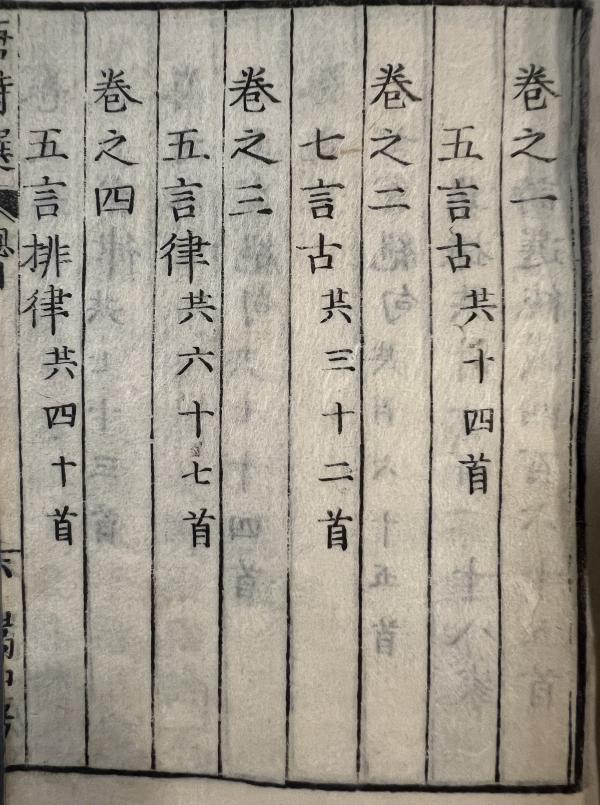 卷之一
五言古共十四首
卷之二
七言古共三十二首
卷之三
五言律共六十七首
卷之四
五言排律共四十首
詩選